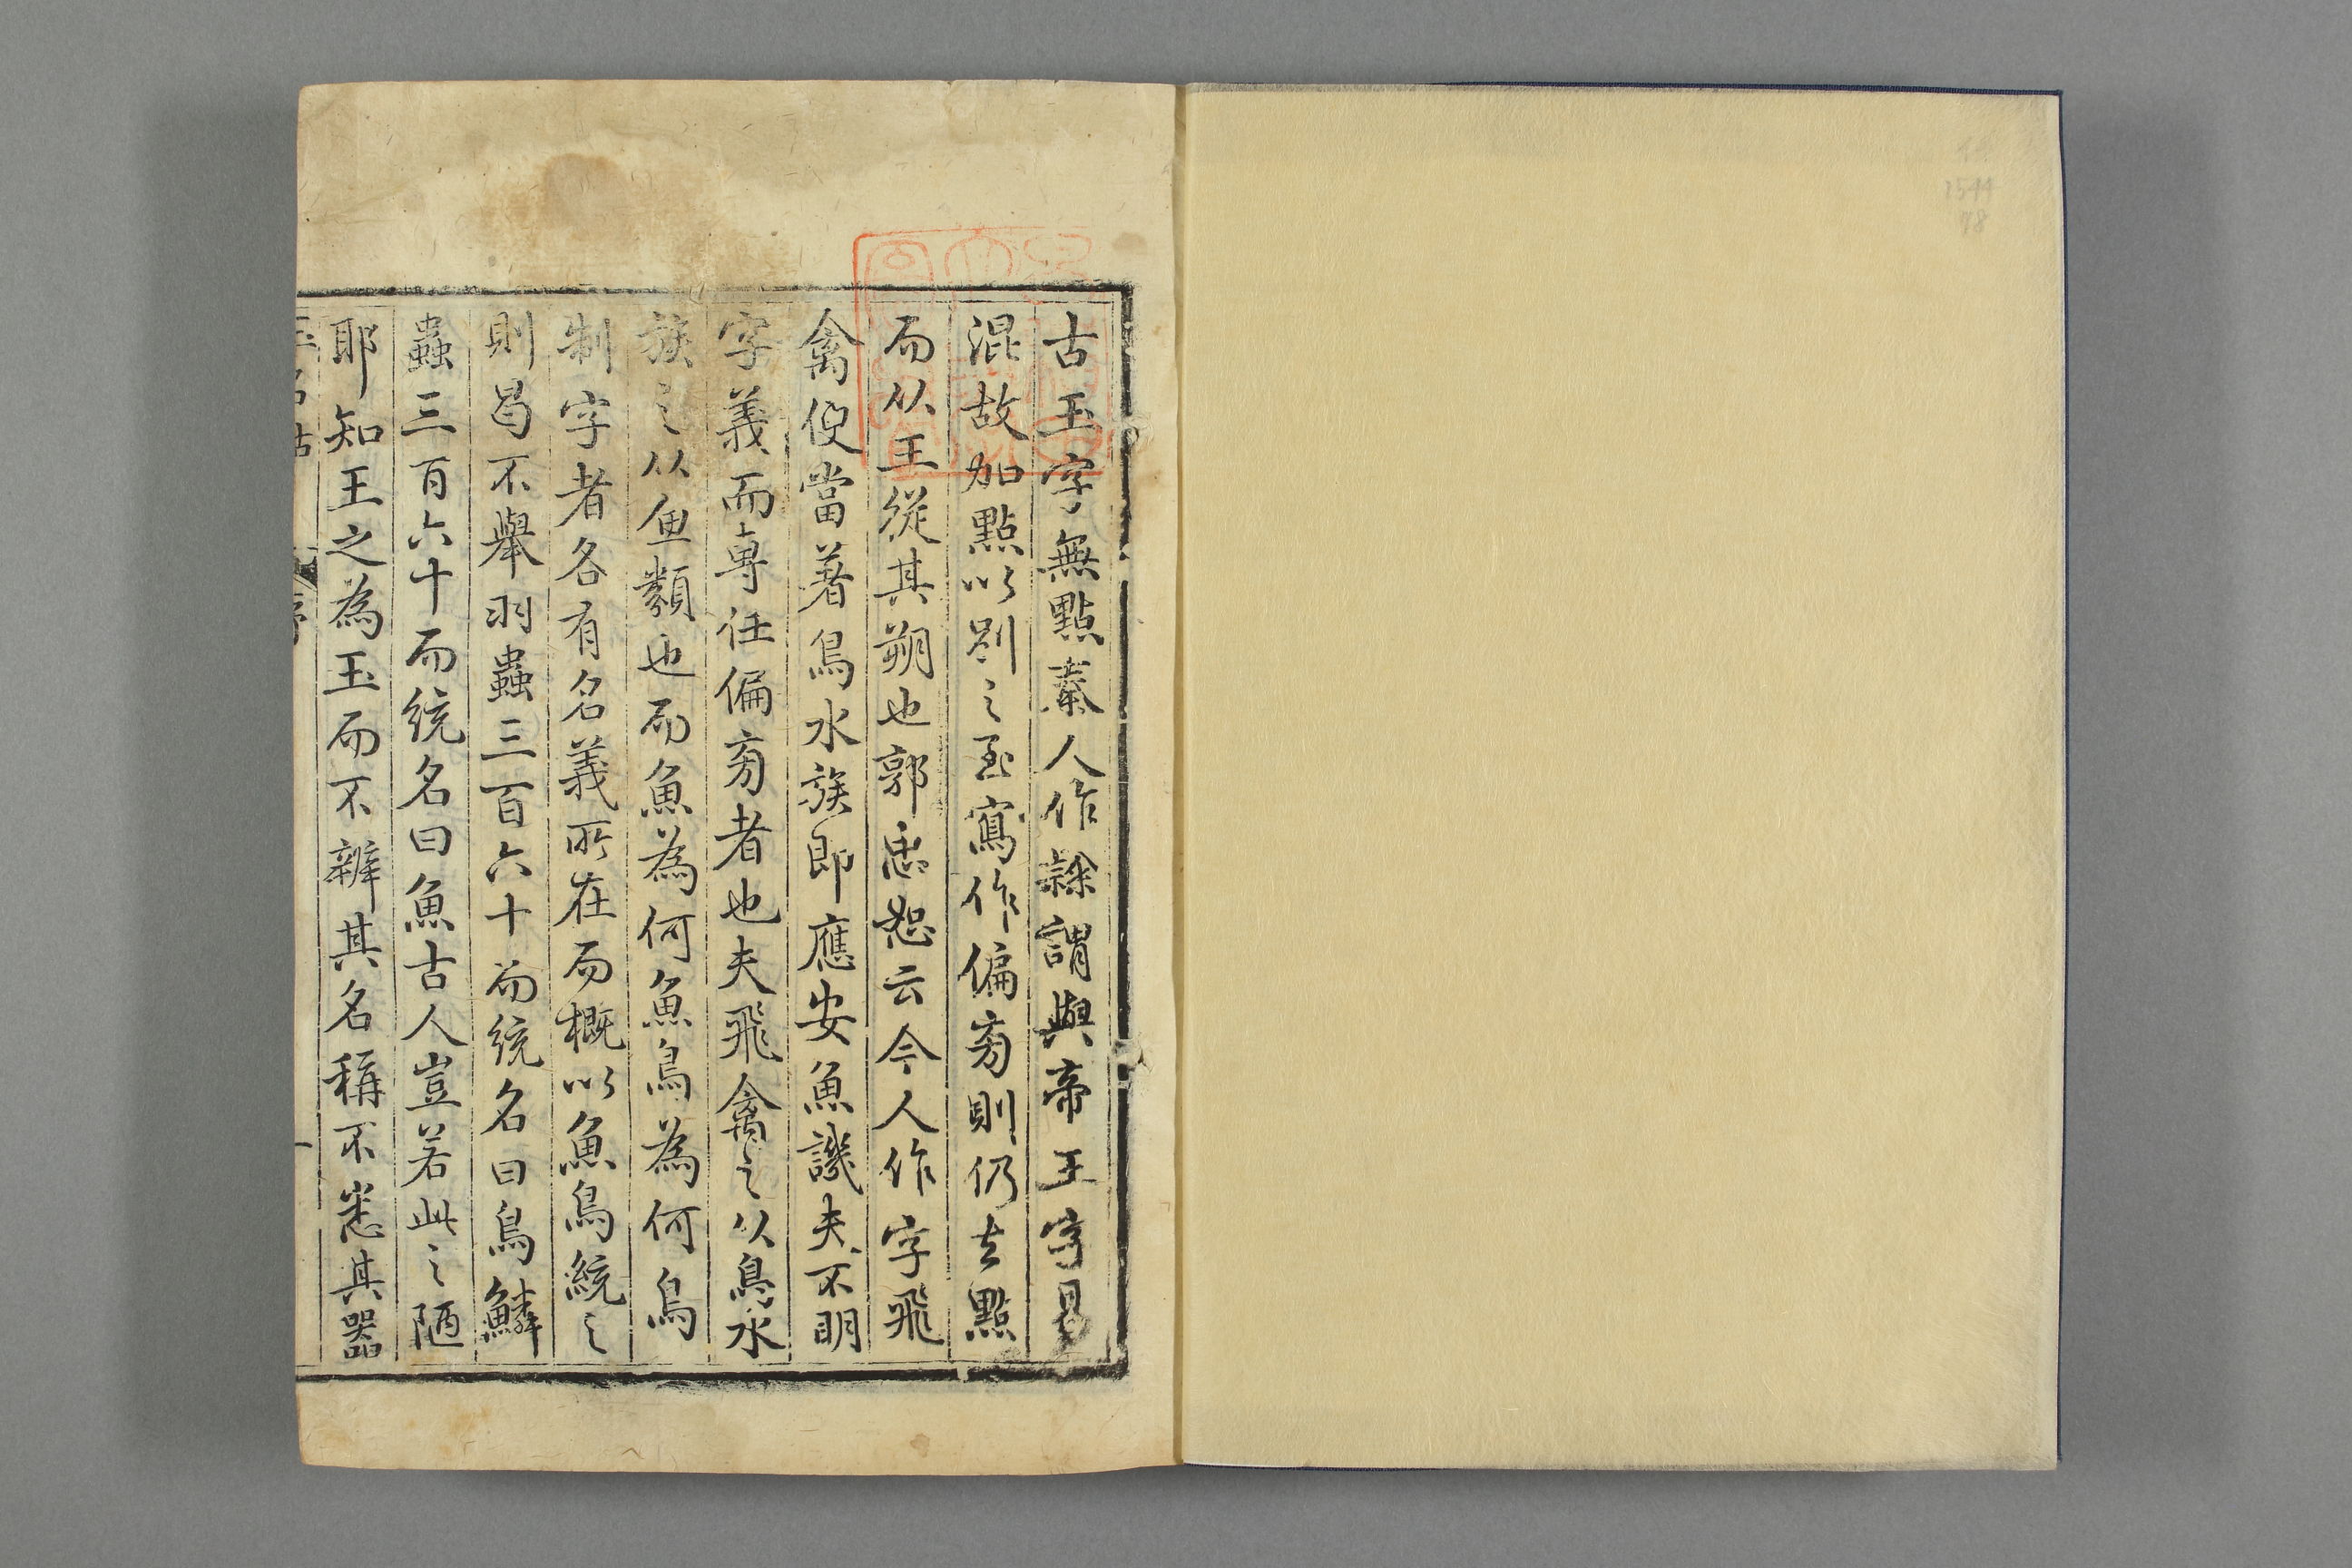 古玉字無點秦人作隸謂與帝王字易
混故加點以別之至寫作偏㫄則仍去點
而从王從其朔也郭忠恕云今人作字飛
禽便當著鳥水族即應安魚譏夫不明
字義而專任偏㫄者也夫飛禽之从鳥水
族之从魚類也而魚為何魚鳥為何鳥
制字者各有名義所在而概以魚鳥統之
則曷不舉羽蟲三百六十而統名曰鳥鱗
蟲三百六十而統名曰魚古人豈若此之陋
耶知王之為玉而不辨其名稱不悉其器
序
一
1544
78